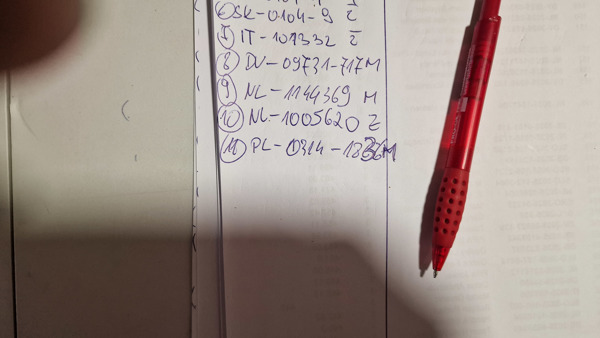 ⑥ SK-0104-9 Ż
⑦ IT-107332 Ż
⑧ DV-09731-717M
⑨ NL-1144369 M
⑩ NL-1005620 Ż
⑪ PL-0314-1836M